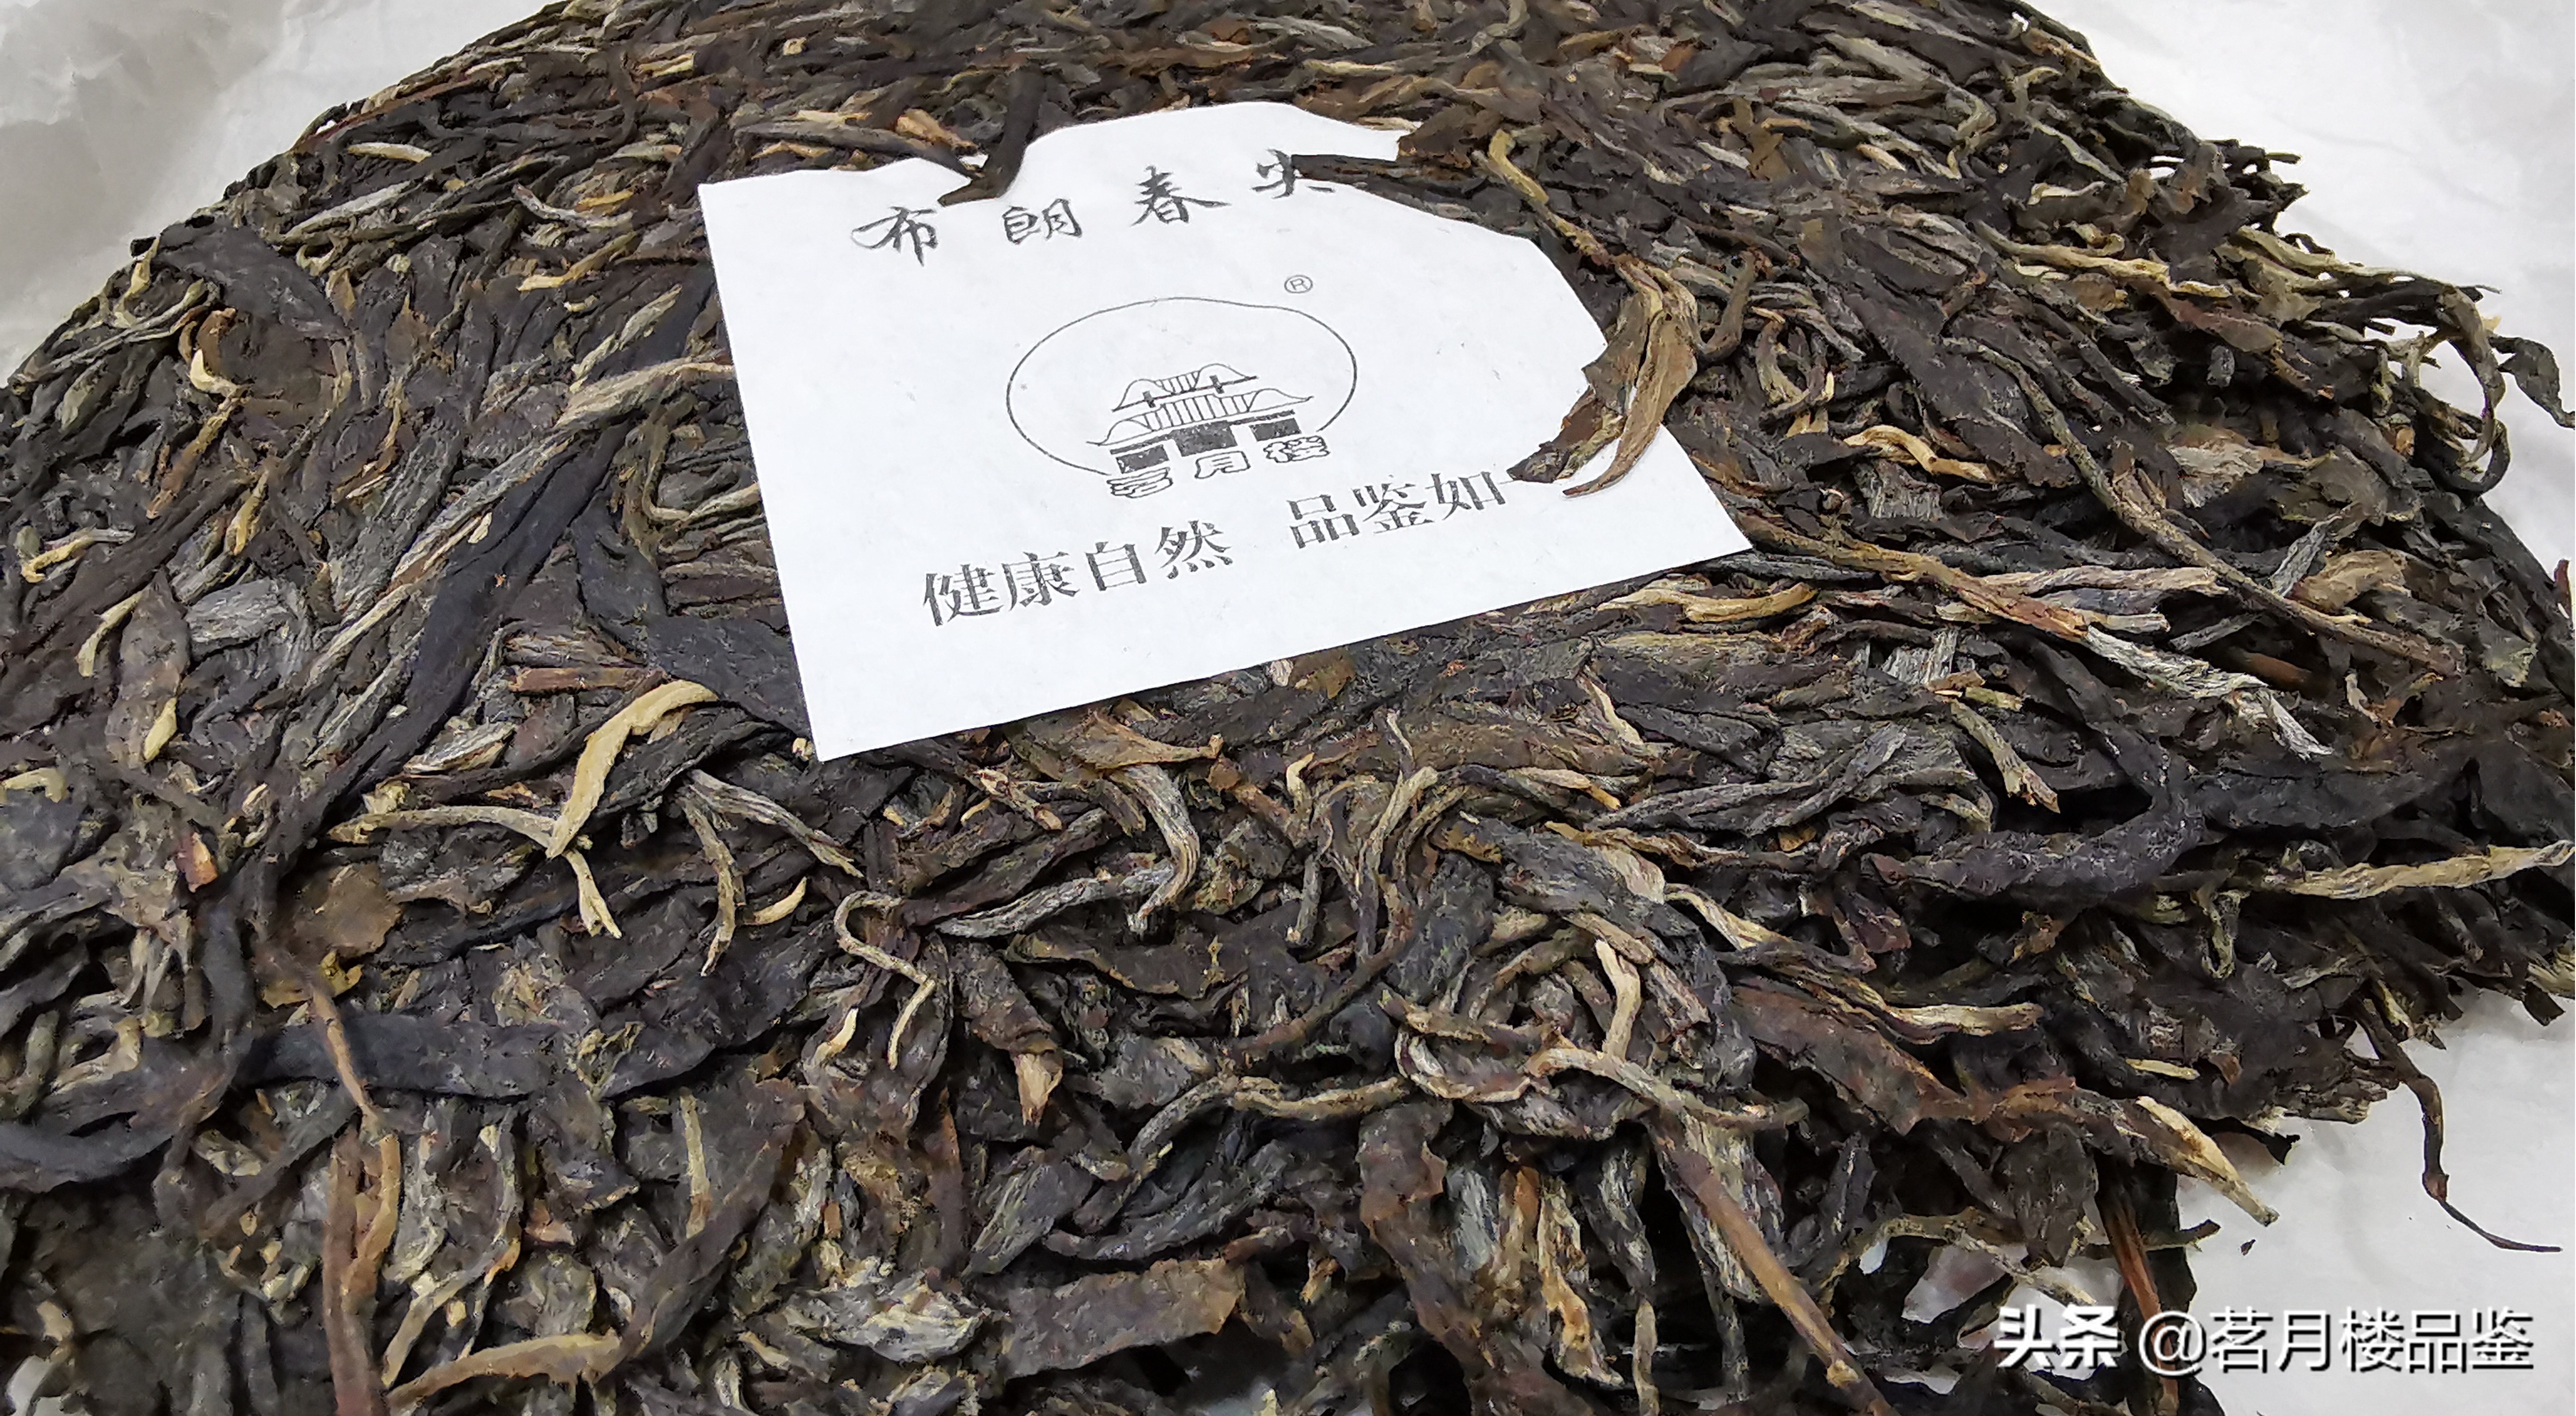 布朗春尖
®
茗月楼
健康自然 品鉴如
头条 @茗月楼品鉴